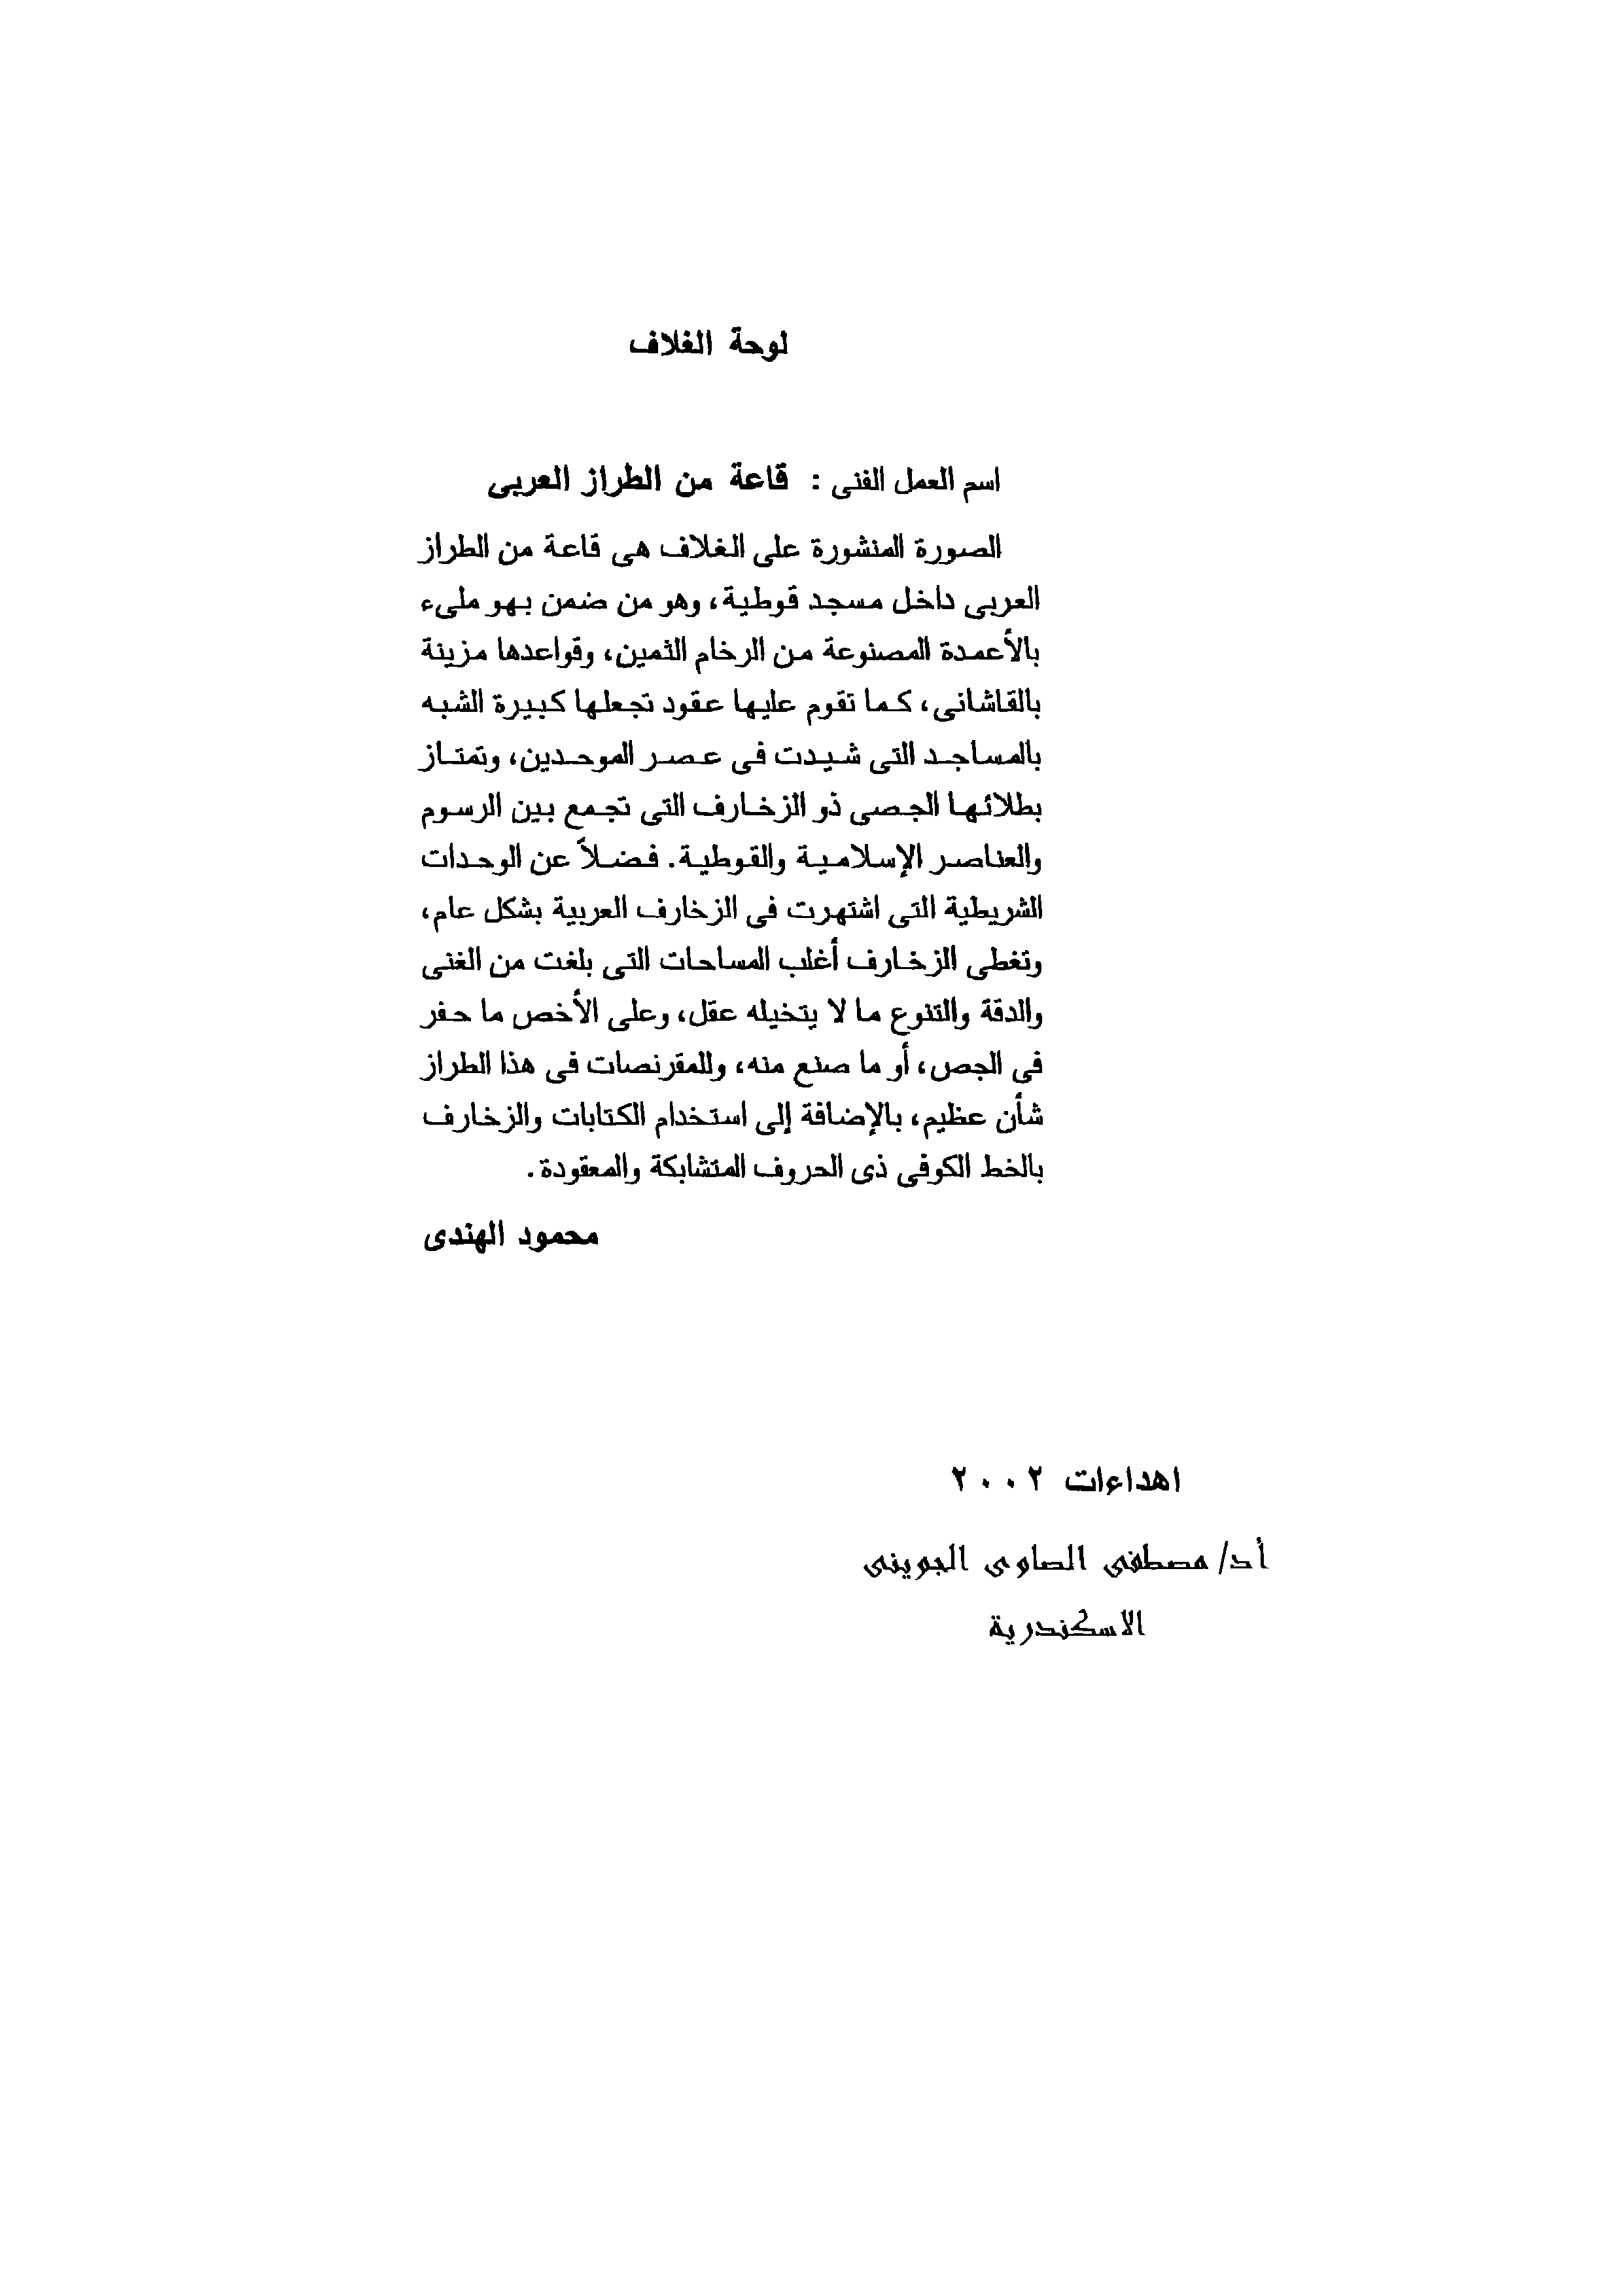 لوحة الغلاف
اسم العمل الفنى : قاعة من الطراز العربى
الصورة المنشورة على الغلاف هى قاعة من الطراز
العربى داخل مسجد قوطية، وهو من ضمن بهو ملىء
بالأعمدة المصنوعة من الرخام الثمين، وقواعدها مزينة
بالقاشانى، كما تقوم عليها عقود تجعلها كبيرة الشبه
بالمساجد التى شيدت فى عصر الموحدين، وتمتاز
بطلائها الجصى ذو الزخارف التى تجمع بين الرسوم
والعناصر الإسلامية والقوطية. فضلاً عن الوحدات
الشريطية التى اشتهرت فى الزخارف العربية بشكل عام،
وتغطى الزخارف أغلب المساحات التى بلغت من الغنى
والدقة والتنوع ما لا يتخيله عقل، وعلى الأخص ما حفر
فى الجص، أو ما صنع منه، وللمقرنصات فى هذا الطراز
شأن عظيم، بالإضافة إلى استخدام الكتابات والزخارف
بالخط الكوفى ذى الحروف المتشابكة والمعقودة.
محمود الهندى
اهداءات ٢٠٠٢
أد/ مصطفى الصاوى الجوينى
الاسكندرية